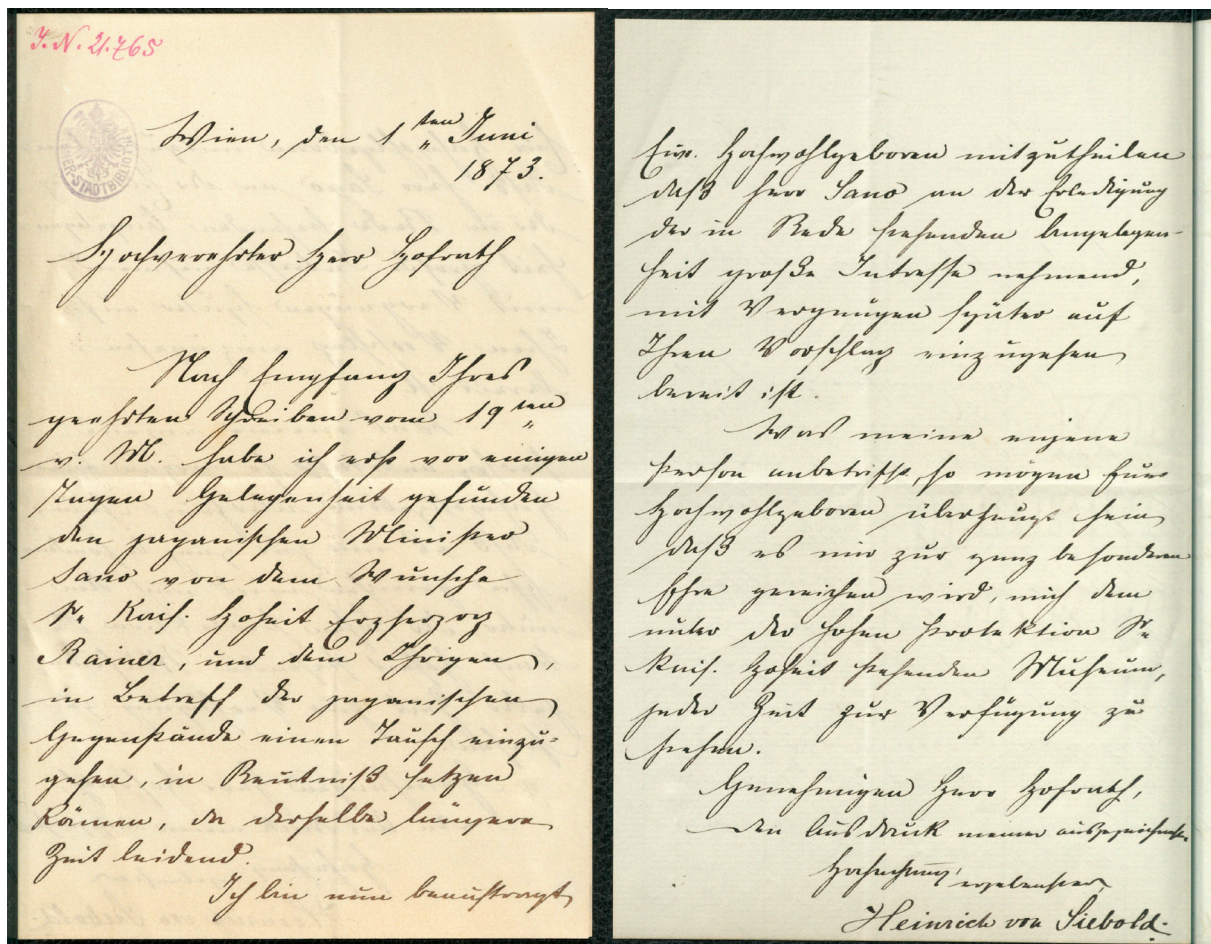 I. N. 21.765
Wien, den 1ten Juni
1873.
Hochverehrter Herr Hofrath
Nach Empfang Ihres
geehrten Schreiben vom 19ten
v. M. habe ich erst vor einigen
Tagen Gelegenheit gefunden
den japanischen Minister
Sano von dem Wunsche
Sr. Kais. Hoheit Erzherzog
Rainer, und dem Ihrigen,
in Betreff der japanischen
Gegenstände einen Tausch einzu-
gehen, in Kentniß setzen
können, da derselbe längere
Zeit leidend.
Ich bin nun beauftragt
Eur. Hochwohlgeboren mitzutheilen
daß Herr Sano an der Erledigung
der in Rede stehenden Angelegen-
heit große Intresse nehmend,
mit Vergnügen später auf
Ihren Vorschlag einzugehen
bereit ist.
Was meine eigene
Person anbetrifft, so mögen Euer
Hochwohlgeboren überzeugt sein
daß es mir zur ganz besonderen
Ehre gereichen wird, mich dem
unter der hohen Protektion Sr.
Kais. Hoheit stehenden Museum,
jeder Zeit zur Verfügung zu
stehen.
Genehmigen Herr Hofrath,
den Ausdruck meiner
Hochachtung, ergebenster
Heinrich von Siebold.